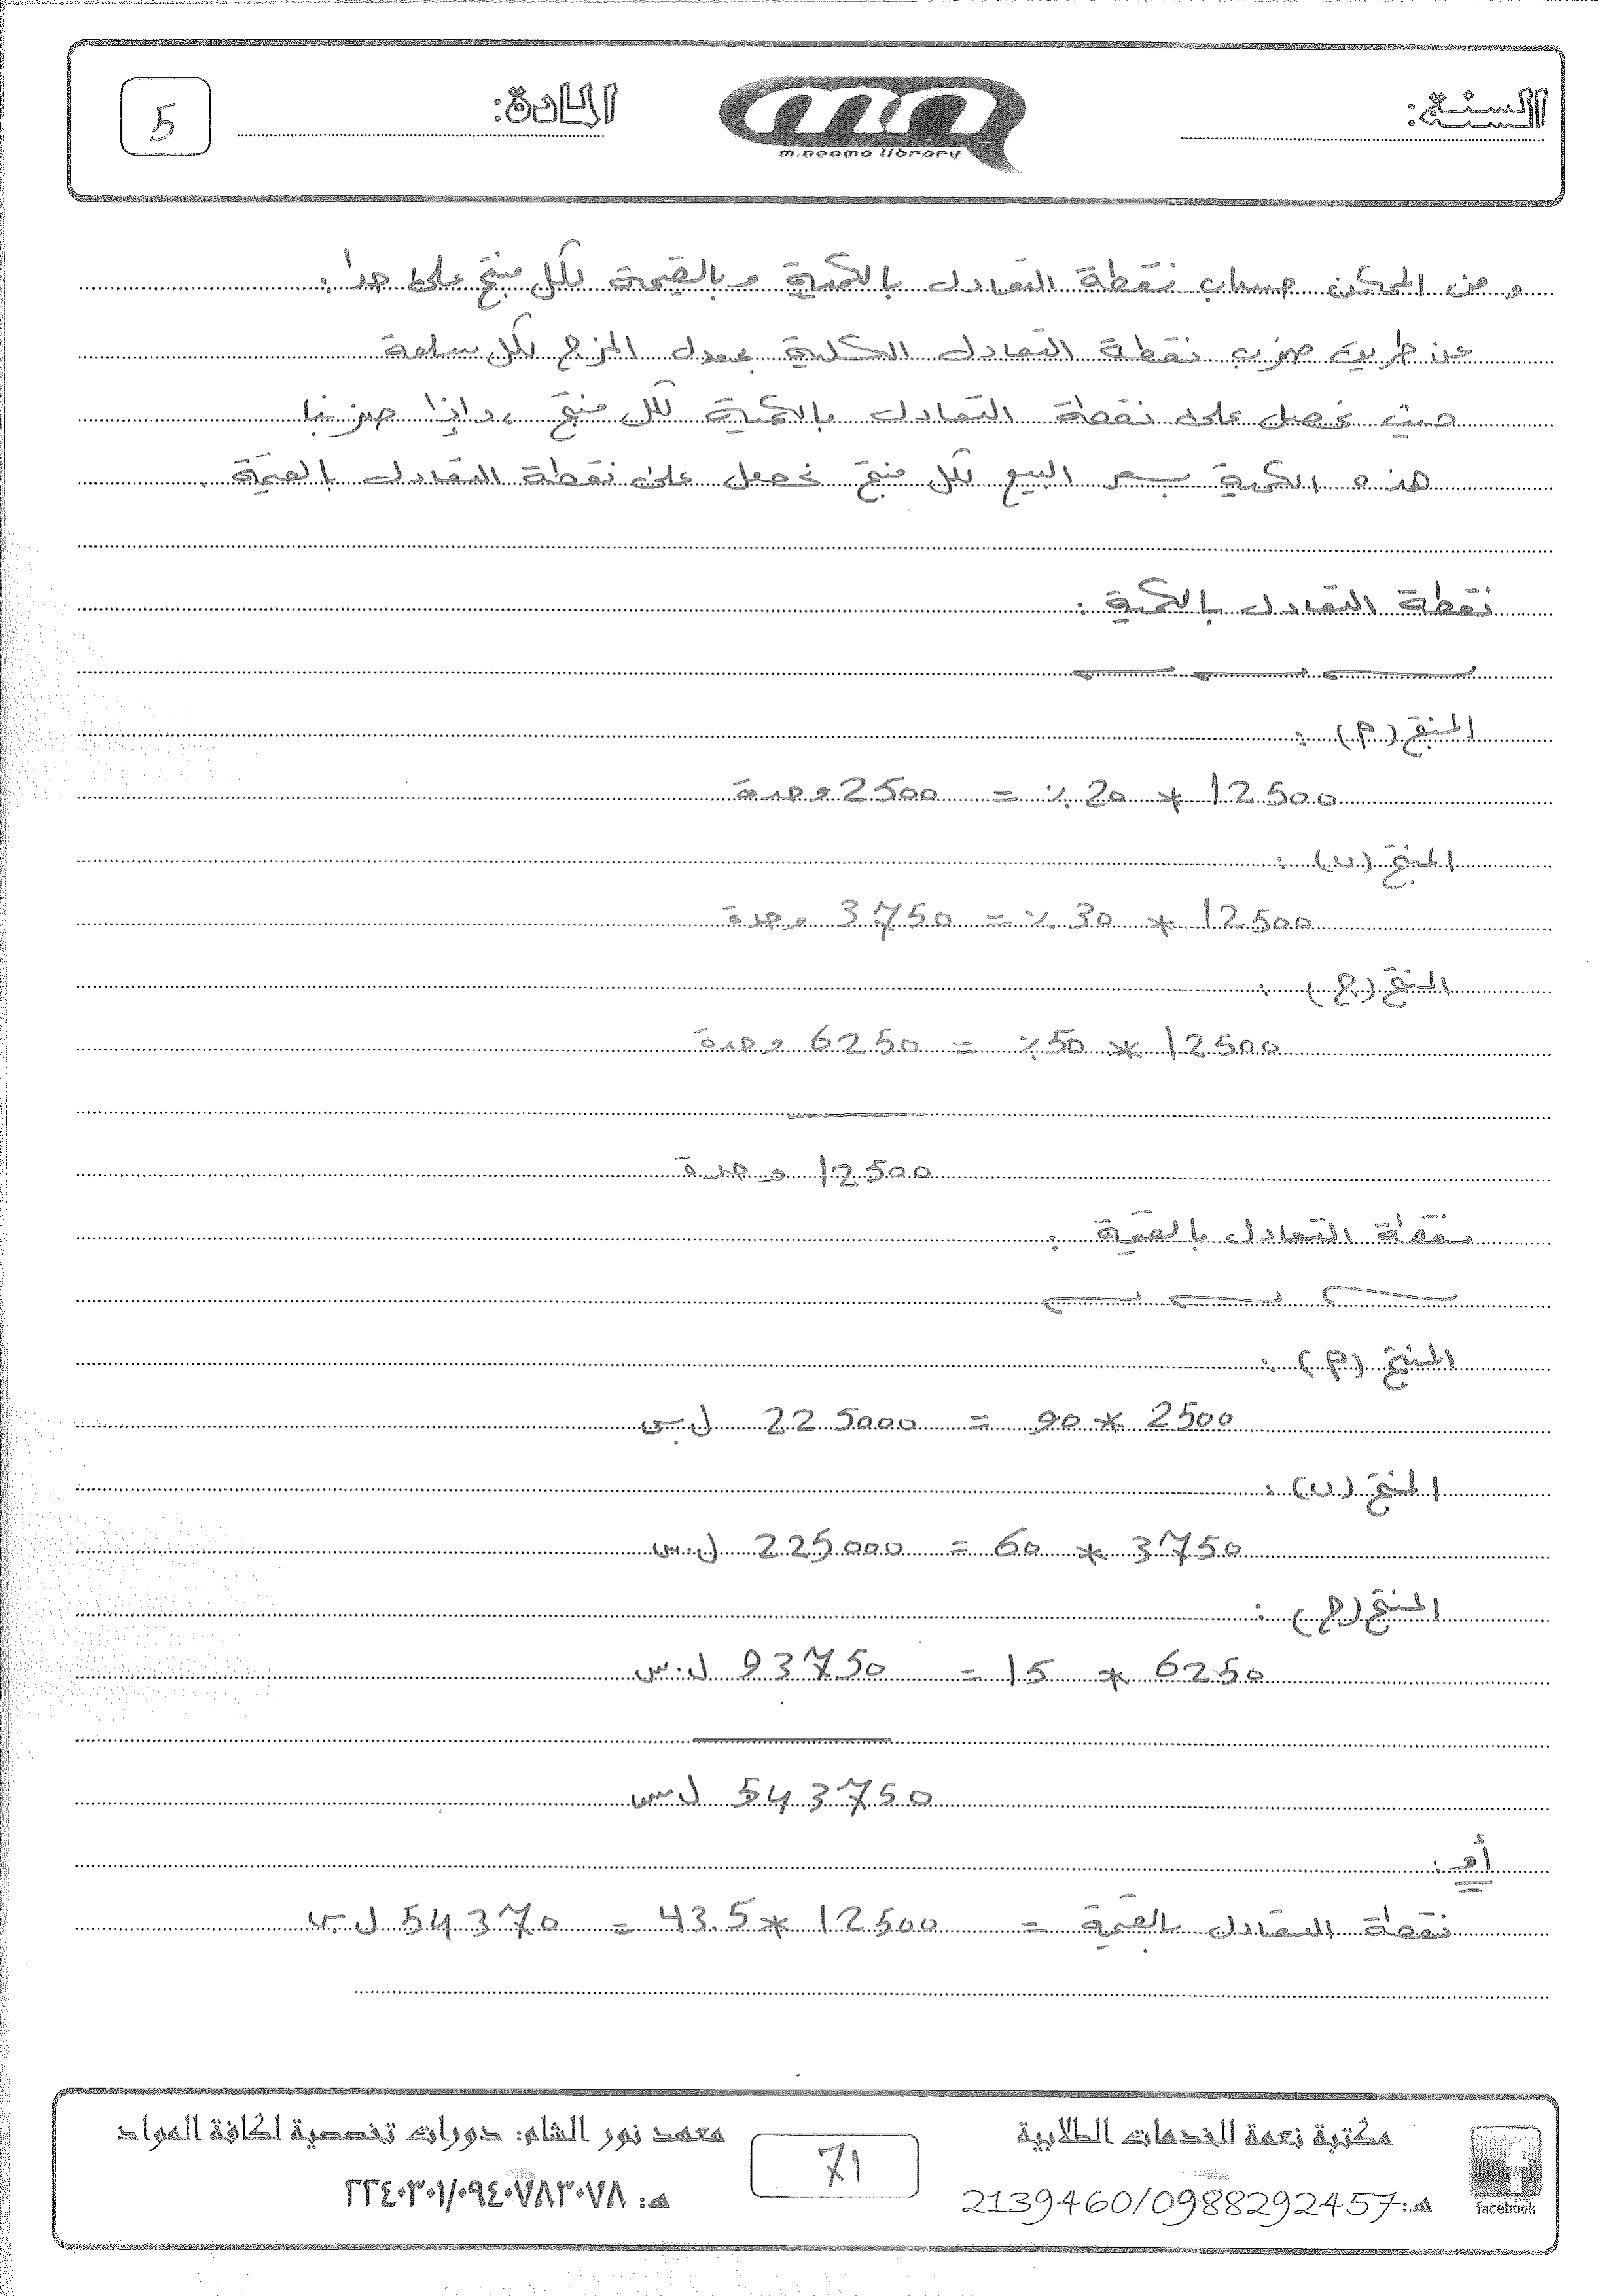 السنة:
m.neama library
المادة:
5
و من الممكن حساب نقطة التعادل بالكمية وبالقيمة لكل منتج على حدا:
عن طريق ضرب نقطة التعادل الكلية بمعدل المزج لكل سلعة
حيث نحصل على نقطة التعادل بالكمية لكل منتج ، وإذا ضربنا
هذه الكمية بسعر البيع لكل منتج نحصل على نقطة التعادل بالقيمة .
نقطة التعادل بالكمية :
المنتج (م) :
12500 * 20 % = 2500 وحدة
المنتج (ب) :
12500 * 30 % = 3750 وحدة
المنتج (ج) :
12500 * 50 % = 6250 وحدة
12500 وحدة
نقطة التعادل بالقيمة :
المنتج (م) :
2500 * 90 = 225000 ل.س
المنتج (ب) :
3750 * 60 = 225000 ل.س
المنتج (ج) :
6250 * 15 = 93750 ل.س
543750 ل.س
أو :
نقطة التعادل بالقيمة = 12500 * 43.5 = 54370 ل.س
مكتبة نعمة للخدمات الطلابية
هـ: 2139460/0988292457
facebook
71
معهد نور الشام: دورات تخصصية لكافة المواد
هـ: ٢٢٤٠٣٠١/٠٩٤٠٧٨٣٠٧٨